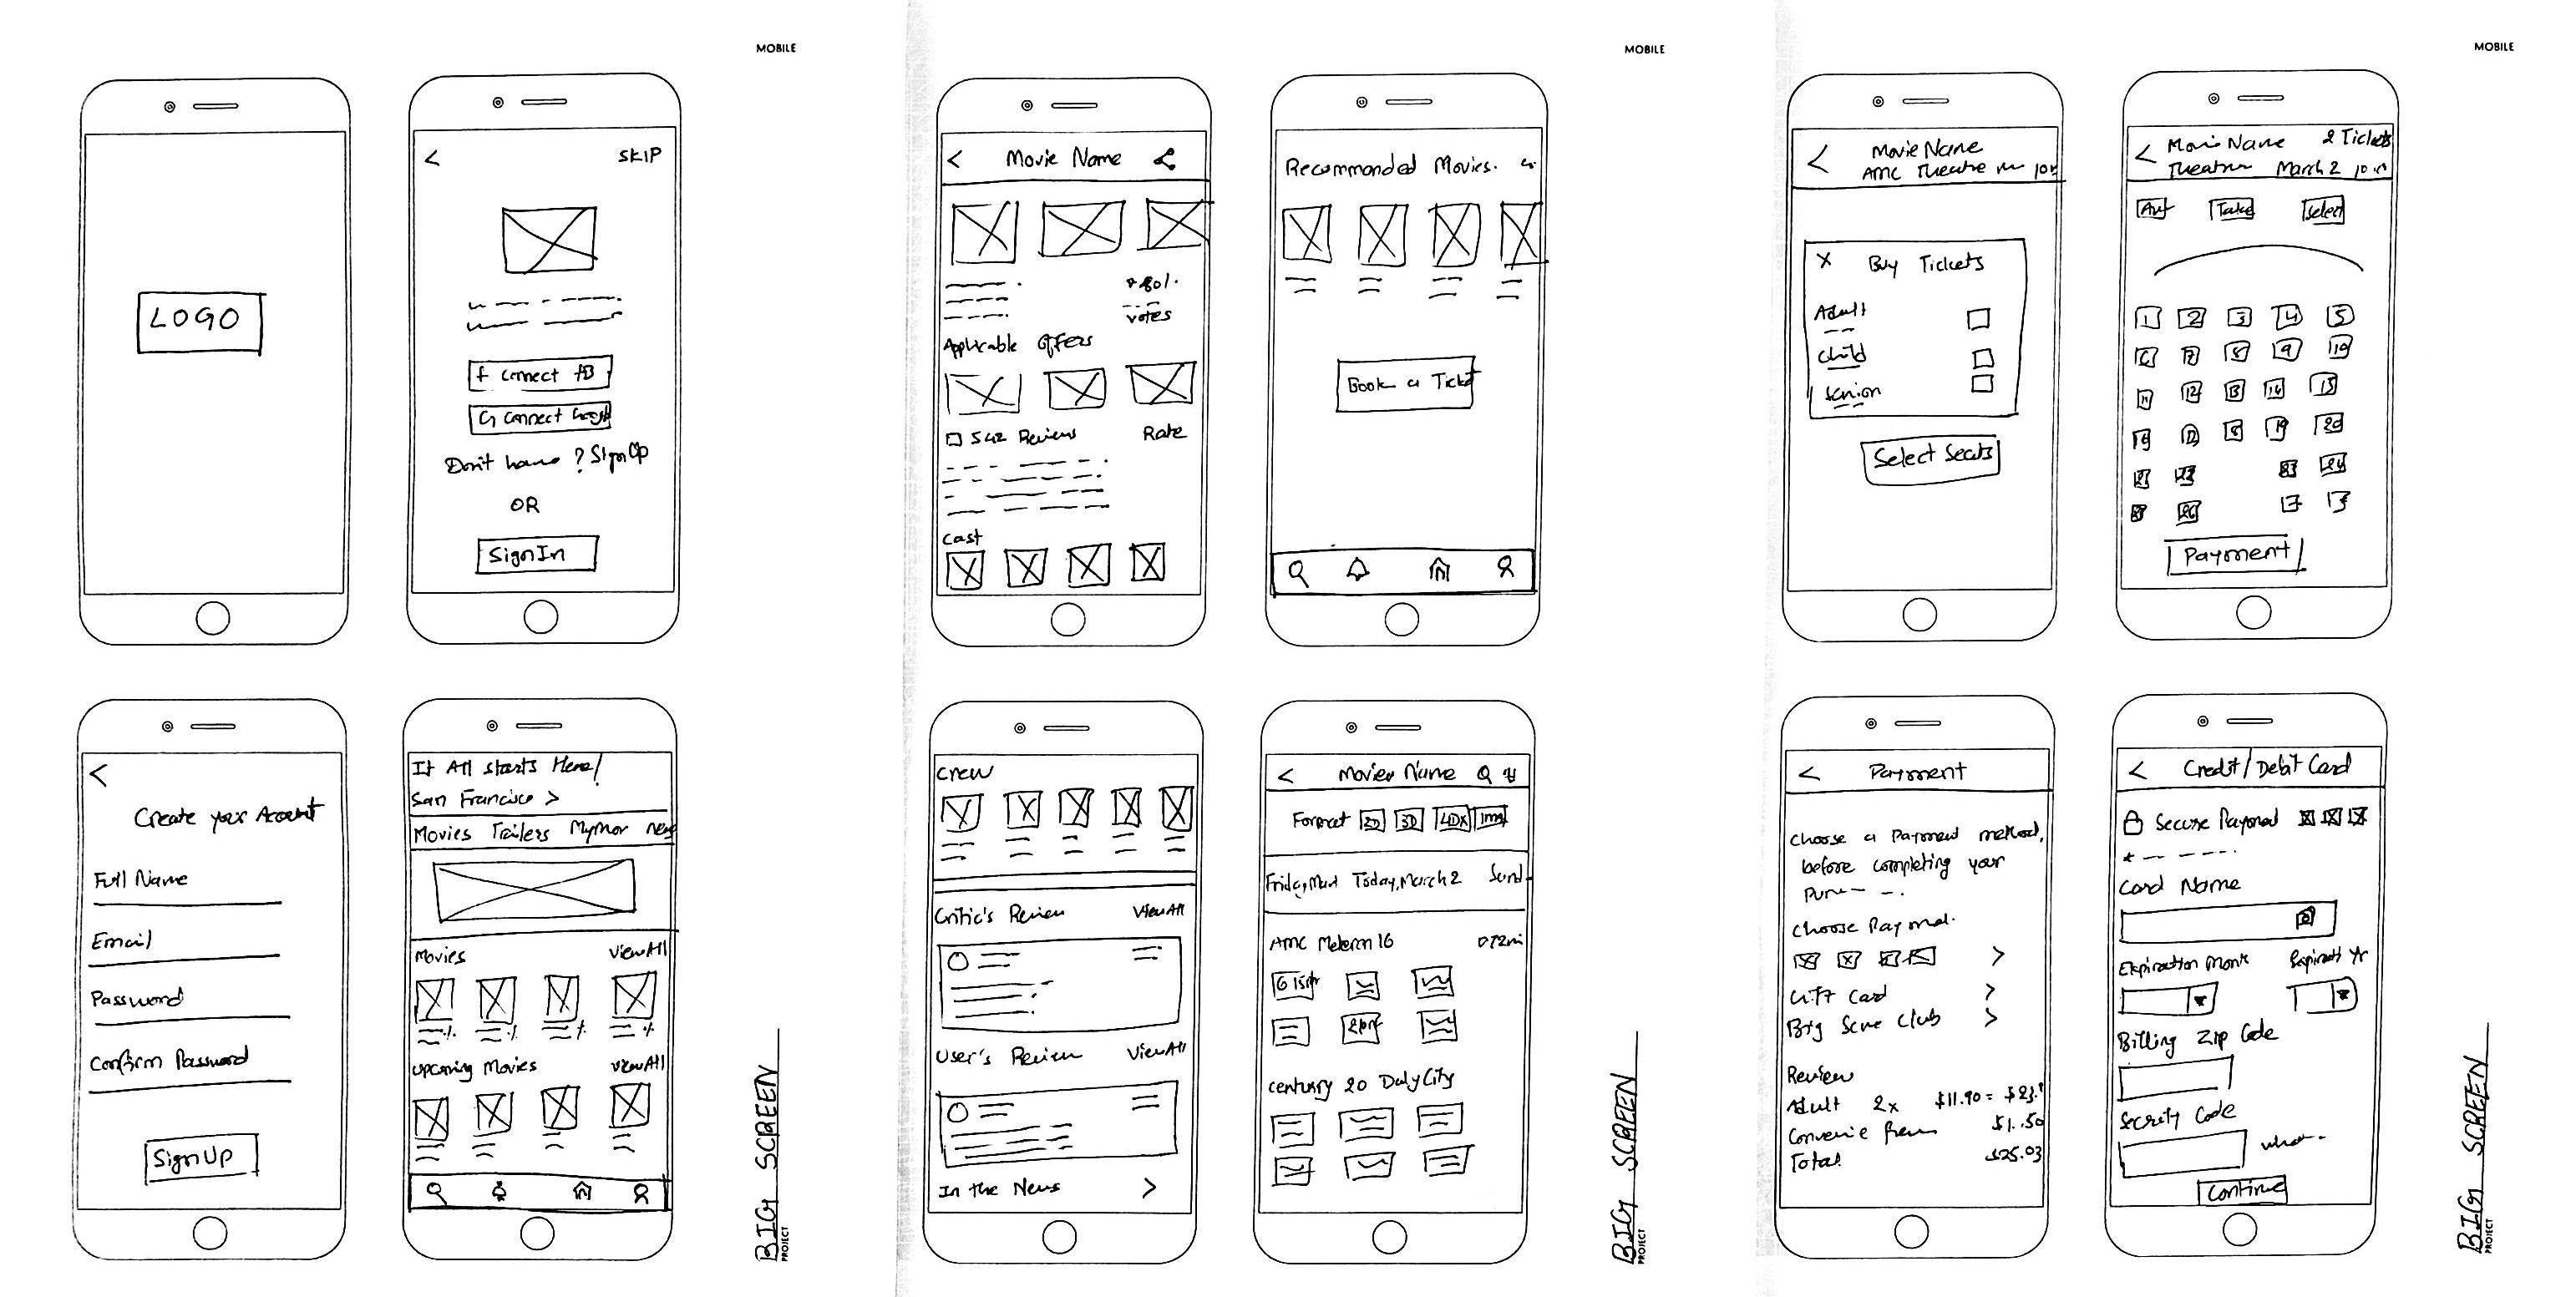 MOBILE
LOGO
< SKIP
f Connect FB
G Connect Google
Don't have ? SignUp
OR
SignIn
<
Create your Account
Full Name
Email
Password
Confirm Password
SignUp
It All Starts Here!
San Francisco >
Movies Trailers
Movies ViewAll
Upcoming Movies ViewAll
BIG SCREEN
PROJECT
MOBILE
< Movie Name
80%
votes
Applicable Offers
542 Reviews Rate
Cast
Recommanded Movies.
Book a Ticket
Crew
Critic's Review ViewAll
User's Review ViewAll
In the News >
< Movie Name
Format 2D 3D 4DX
Today, March 2
AMC 16
Century 20 DalyCity
BIG SCREEN
PROJECT
MOBILE
< Movie Name
AMC Theatre
X Buy Tickets
Adult
Child
Senior
Select Seats
< Movie Name 2 Tickets
March 2
Select
1 2 3 4 5
6 7 8 9 10
11 12 13 14 15
Payment
< Payment
Choose a Payment method,
before completing your
Choose Payment.
>
Gift Card >
Club >
Review
Adult 2x $11.90 =
$1.50
Total $25.03
< Credit/Debit Card
Secure Payment
Card Name
Expiration
Billing Zip Code
Code
Continue
BIG SCREEN
PROJECT